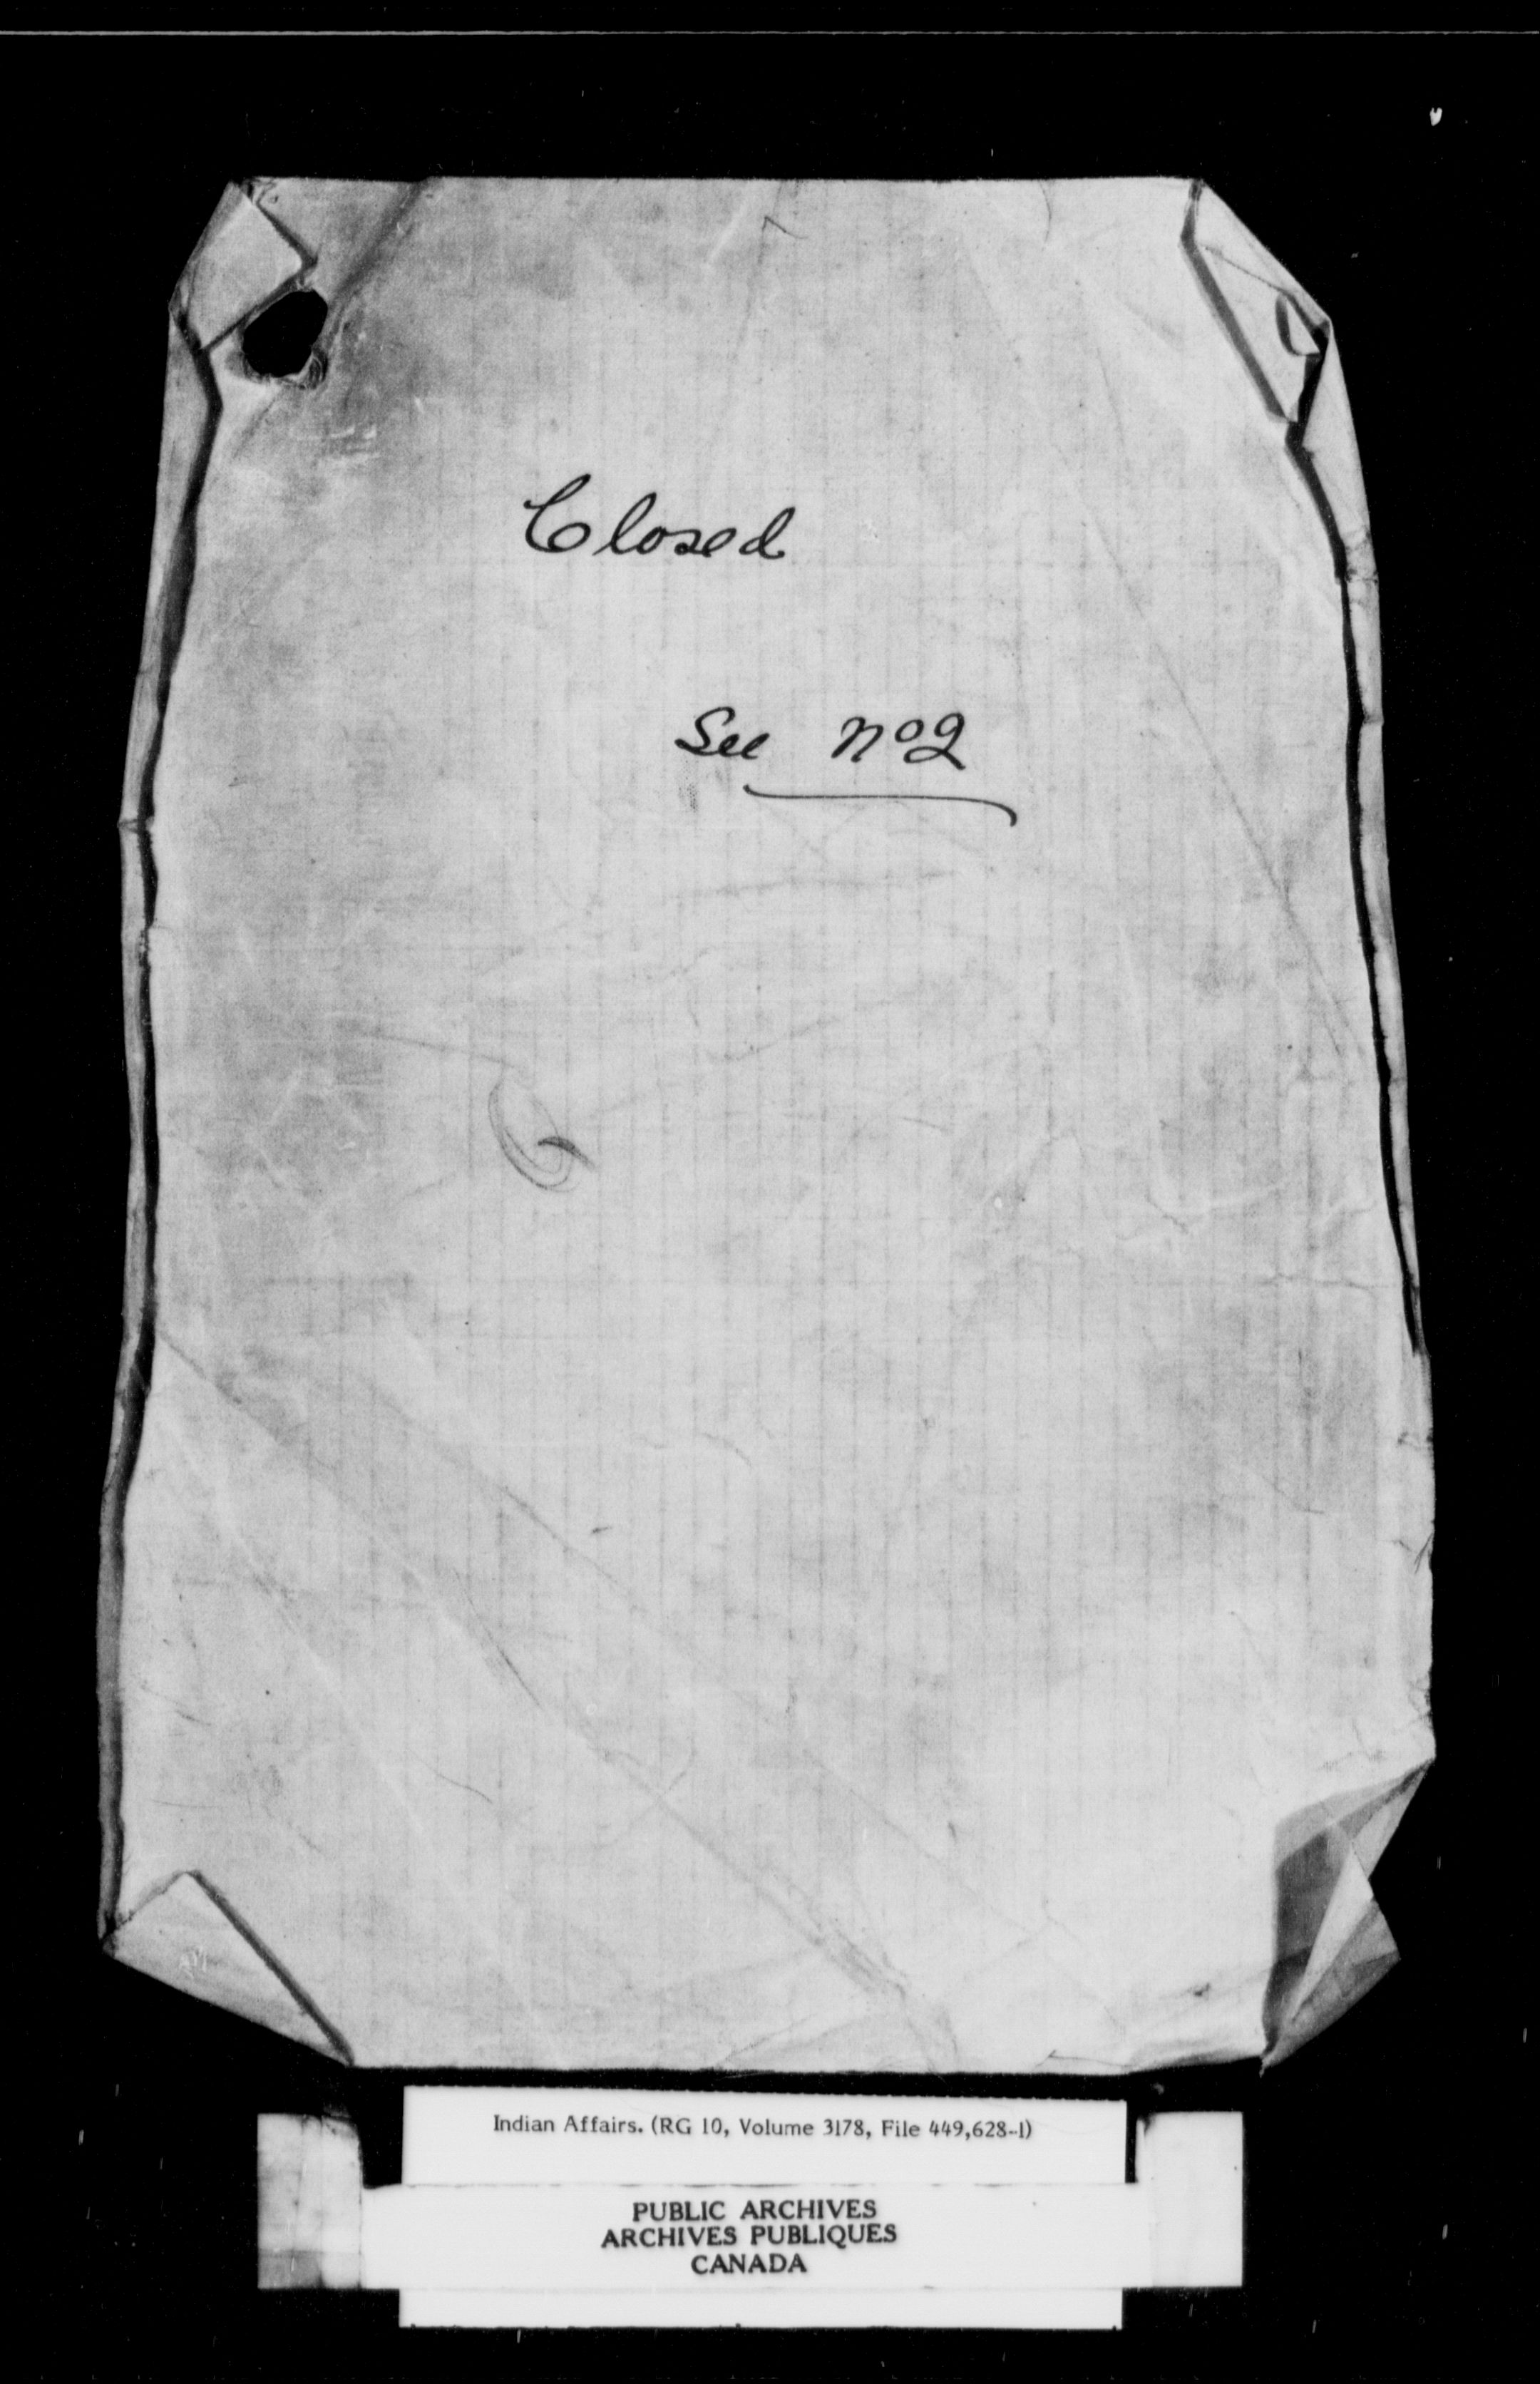 Closed
See No 2
Indian Affairs. (RG 10, Volume 3178, File 449,628-1)
PUBLIC ARCHIVES
ARCHIVES PUBLIQUES
CANADA